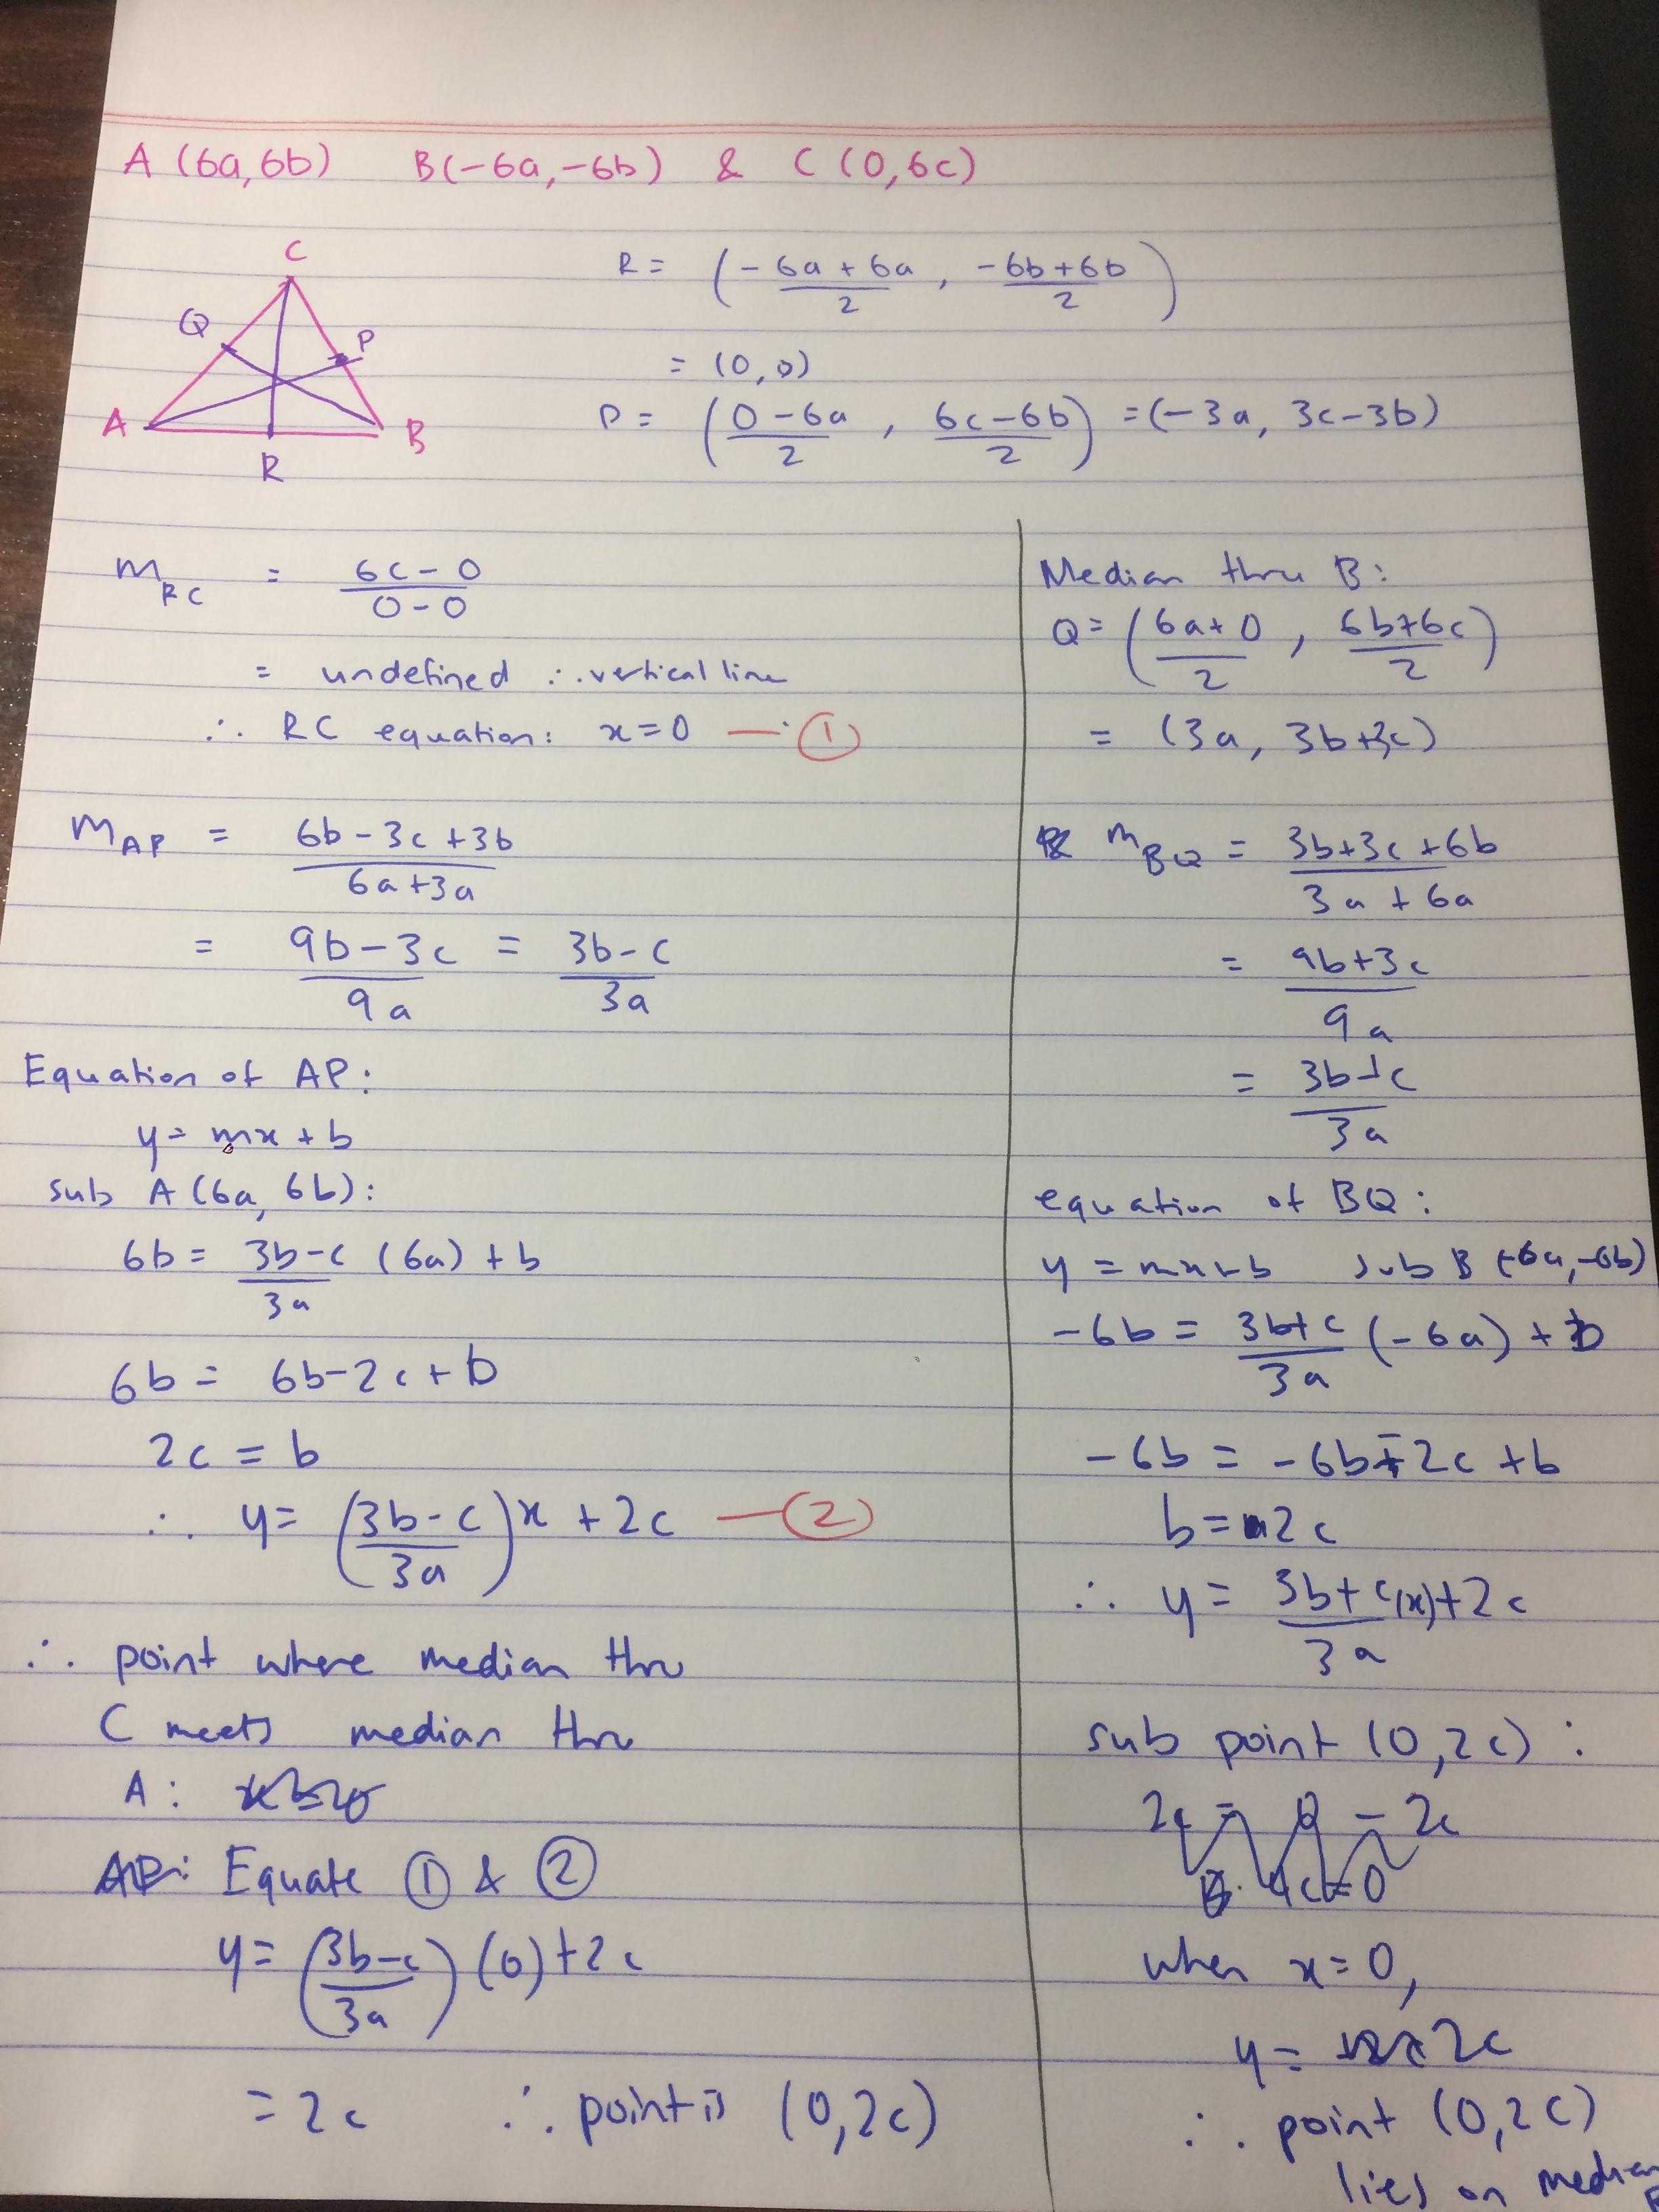 A (6a, 6b) B(-6a, -6b) & C (0, 6c)
C
Q
P
A
B
R
R = ( (-6a + 6a)/2 , (-6b + 6b)/2 )
= (0, 0)
P = ( (0 - 6a)/2 , (6c - 6b)/2 ) = (-3a, 3c - 3b)
m_RC = (6c - 0)/(0 - 0)
= undefined ∴ vertical line
∴ RC equation: x = 0 — ①
m_AP = (6b - 3c + 3b)/(6a + 3a)
= (9b - 3c)/(9a) = (3b - c)/(3a)
Equation of AP:
y = mx + b
sub A (6a, 6b):
6b = (3b - c)/(3a) (6a) + b
6b = 6b - 2c + b
2c = b
∴ y = ((3b - c)/(3a)) x + 2c — ②
∴ point where median thru
C meets median thru
A:
Equate ① & ②
y = ((3b - c)/(3a)) (0) + 2c
= 2c ∴ point is (0, 2c)
Median thru B:
Q = ( (6a + 0)/2 , (6b + 6c)/2 )
= (3a, 3b + 3c)
m_BQ = (3b + 3c + 6b)/(3a + 6a)
= (9b + 3c)/(9a)
= (3b + c)/(3a)
equation of BQ:
y = mx + b sub B (-6a, -6b)
-6b = (3b + c)/(3a) (-6a) + b
-6b = -6b - 2c + b
b = 2c
∴ y = (3b + c)/(3a) (x) + 2c
sub point (0, 2c):
2c = 0 - 2c
4c = 0
when x = 0,
y = 2c
∴ point (0, 2c)
lies on median